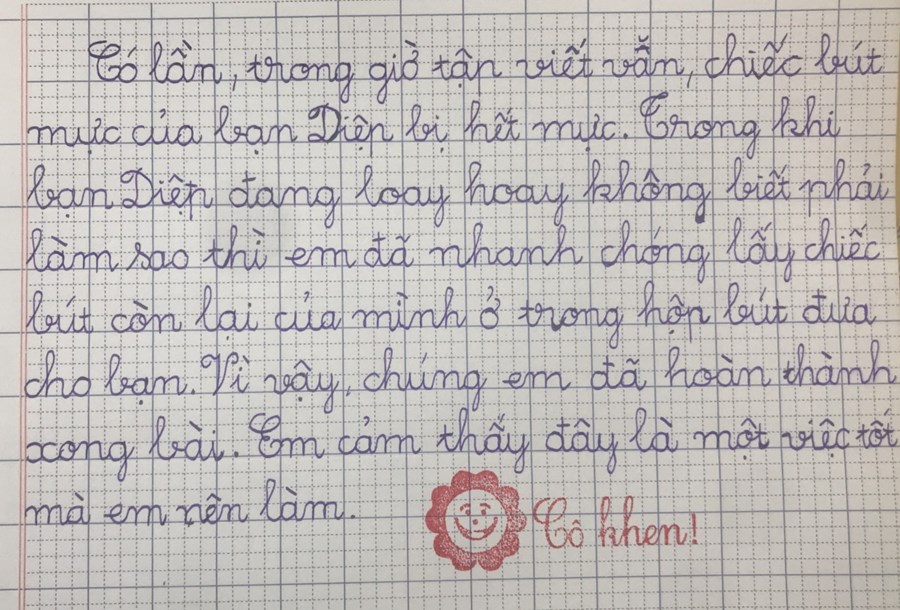 Có lần, trong giờ tập viết văn, chiếc bút
mực của bạn Diệp bị hết mực. Trong khi
bạn Diệp đang loay hoay không biết phải
làm sao thì em đã nhanh chóng lấy chiếc
bút còn lại của mình ở trong hộp bút đưa
cho bạn. Vì vậy, chúng em đã hoàn thành
xong bài. Em cảm thấy đây là một việc tốt
mà em nên làm.
Cô khen!